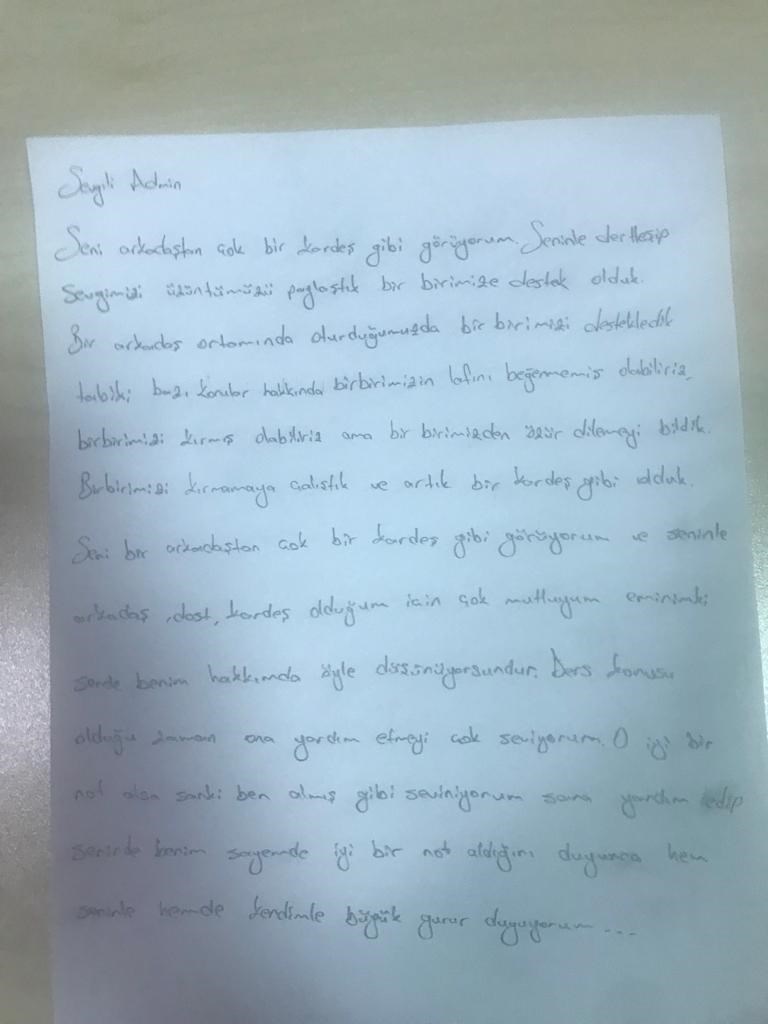 Sevgili Admin
Seni arkadaştan çok bir kardeş gibi görüyorum. Seninle dertleşip
sevgimizi üzüntümüzü paylaştık bir birimize destek olduk.
Bir arkadaş ortamında oturduğumuzda bir birimizi destekledik
tabiki bazı konular hakkında birbirimizin lafını beğenmemiş olabiliriz,
birbirimizi kırmış olabiliriz ama bir birimizden özür dilemeyi bildik.
Birbirimizi kırmamaya çalıştık ve artık bir kardeş gibi olduk.
Seni bir arkadaştan çok bir kardeş gibi görüyorum ve seninle
arkadaş, dost, kardeş olduğum için çok mutluyum eminimki
sende benim hakkımda öyle düşünüyorsundur. Ders konusu
olduğu zaman ona yardım etmeyi çok seviyorum. O iyi bir
not alsa sanki ben almış gibi seviniyorum sana yardım edip
seninde benim sayemde iyi bir not aldığını duyunca hem
seninle hemde kendimle büyük gurur duyuyorum...